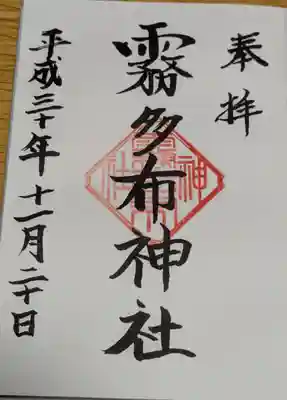 奉拝
霧多布神社
平成三十年十一月二十日